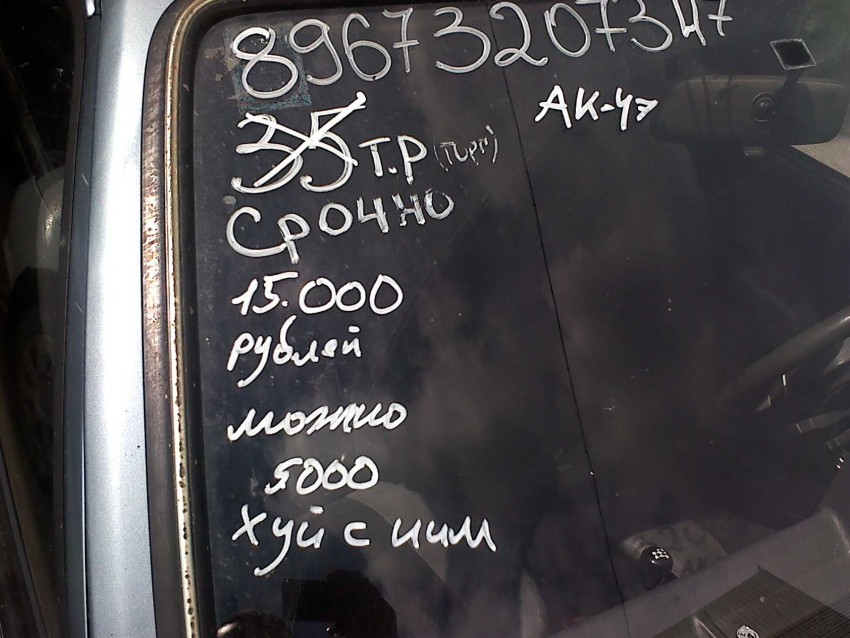 89673207347
АК-47
35 т.р (торг)
Срочно
15.000
рублей
можно
5000
хуй с ним